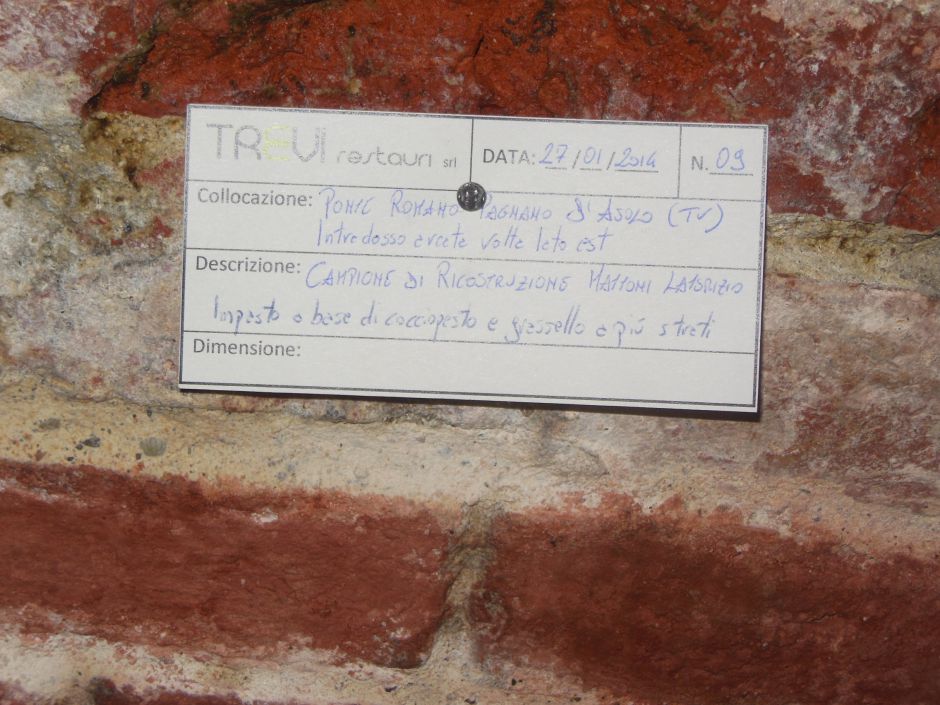 TREVI restauri srl DATA: 27/01/2014 N. 09
Collocazione: PONTE ROMANO PAGNANO D'ASOLO (TV)
Intradosso arcata volta lato est
Descrizione: CAMPIONE DI RICOSTRUZIONE MATTONI LATERIZIO
Impasto a base di cocciopesto e grassello a più strati
Dimensione: